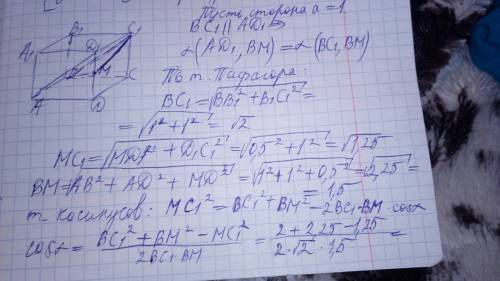 Пусть сторона a = 1
BC₁ || AD₁ ⇒
∠(AD₁, BM) = ∠(BC₁, BM)
По т. Пифагора:
BC₁ = √BB₁² + B₁C₁² =
= √1² + 1² = √2
MC₁ = √MD₁² + D₁C₁² = √0,5² + 1² = √1,25
BM = √AB² + AD² + MD² = √1² + 1² + 0,5² = √2,25 =
= 1,5
т. косинусов: MC₁² = BC₁² + BM² - 2BC₁·BM·cosα
cosα = (BC₁² + BM² - MC₁²)/(2BC₁·BM) = (2 + 2,25 - 1,25)/(2·√2·1,5) =
A₁ B₁ C₁ D₁
M C
A D